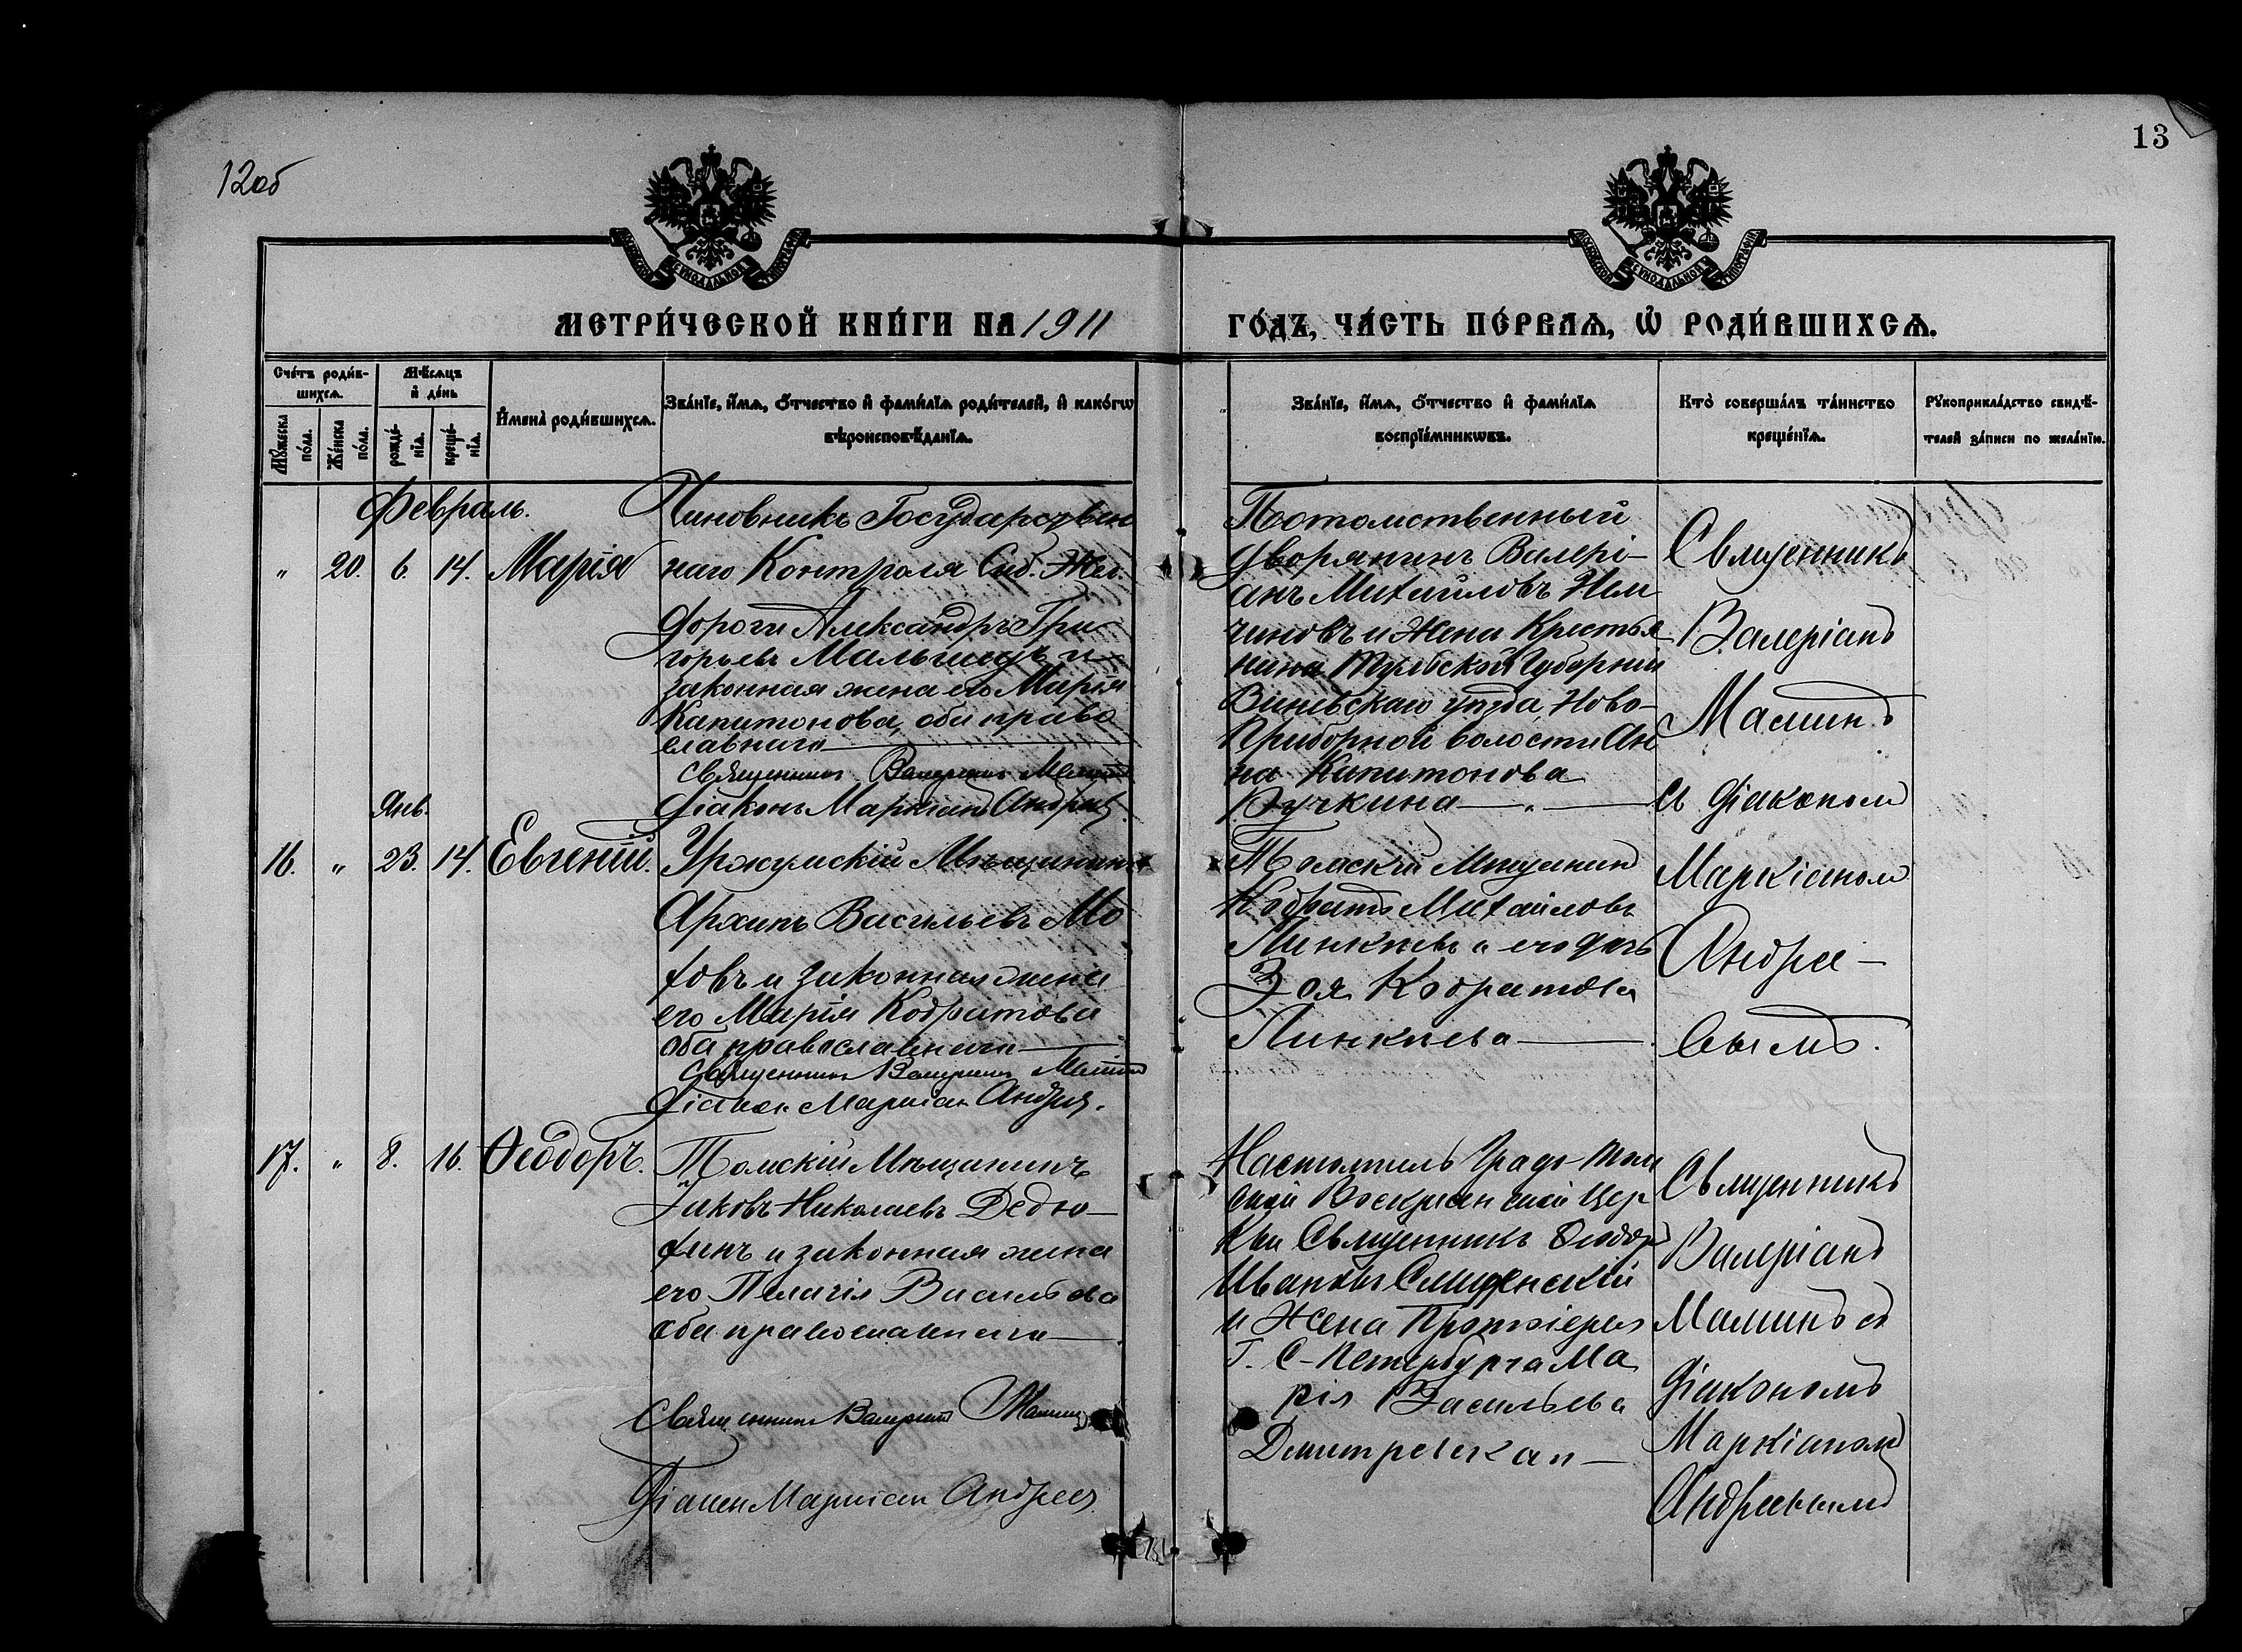 12об
13
МОСКОВСКОЙ СѴНОДАЛЬНОЙ ТИПОГРАФІИ
МОСКОВСКОЙ СѴНОДАЛЬНОЙ ТИПОГРАФІИ
МЕТРИ́ЧЕСКОЙ КНИ́ГИ НА 1911
ГО́ДЪ, ЧА́СТЬ ПЕ́РВАѦ, Ѡ҆ РОДИ́ВШИХСѦ.
Сче́тъ роди́в-
шихсѧ.
Мѣ́сѧцъ
и҆ де́нь
Мꙋ́жеска
по́ла.
Же́нска
по́ла.
рожде́-
нїѧ.
креще́-
нїѧ.
И҆мена̀ роди́вшихсѧ.
Зва́нїе, и҆́мѧ, ѻ҆́тчество и҆ фами́лїѧ роди́телей, и҆ како́гѡ
вѣроисповѣ́данїѧ.
Зва́нїе, и҆́мѧ, ѻ҆́тчество и҆ фами́лїѧ
воспрїе́мникѡвъ.
Кто̀ соверша́лъ та́инство
креще́нїѧ.
Рꙋкоприкла́дство свидѣ́-
телей за́писи по жела́нїю.
Февраль.
" 20. 6. 14. Марія
Чиновникъ Государствен
наго Контроля Сиб. Жел.
дороги Александръ Гри-
горьевъ и
законная жена его Марія
Капитонова, оба право
славнаго
Священникъ Валеріанъ Маминъ
Діаконъ Маркіанъ Андреевъ
Потомственный
дворянинъ Валері-
анъ Михайловъ Нем
чиновъ и жена Крестья
нина Тульской Губерніи
уѣзда, Ново-
Приборной волости Ан
на Капитонова
Вучкина — " —
Священникъ
Валеріанъ
Маминъ
съ діакономъ
Маркіаномъ
Андрее-
вымъ.
Янв.
16. " 23. 14. Евгеній.
Уржумскій Мѣщанинъ
Архипъ Васильевъ Мо
ховъ и законная жена
его Марія Кодратова
оба православнаго
Священникъ Валеріанъ Маминъ
Діаконъ Маркіанъ Андреевъ
Томскій Мѣщанинъ
Кодратъ Михайловъ
и его дочь
Зоя Кодратова
17. " 8. 16. Ѳеодоръ.
Томскій Мѣщанинъ
Яковъ Николаевъ Дедю-
хинъ и законная жена
его Пелагія Васильева
оба православнаго
Священникъ Валеріанъ Маминъ
Діаконъ Маркіанъ Андреевъ
Настоятель Градо-Том
ской Воскресенской Цер
кви Священникъ Ѳеодоръ
Ивановъ
и Жена Протоіерея
г. С-Петербурга Ма
рія Васильева
Священникъ
Валеріанъ
Маминъ съ
Діакономъ
Маркіаномъ
Андреевымъ